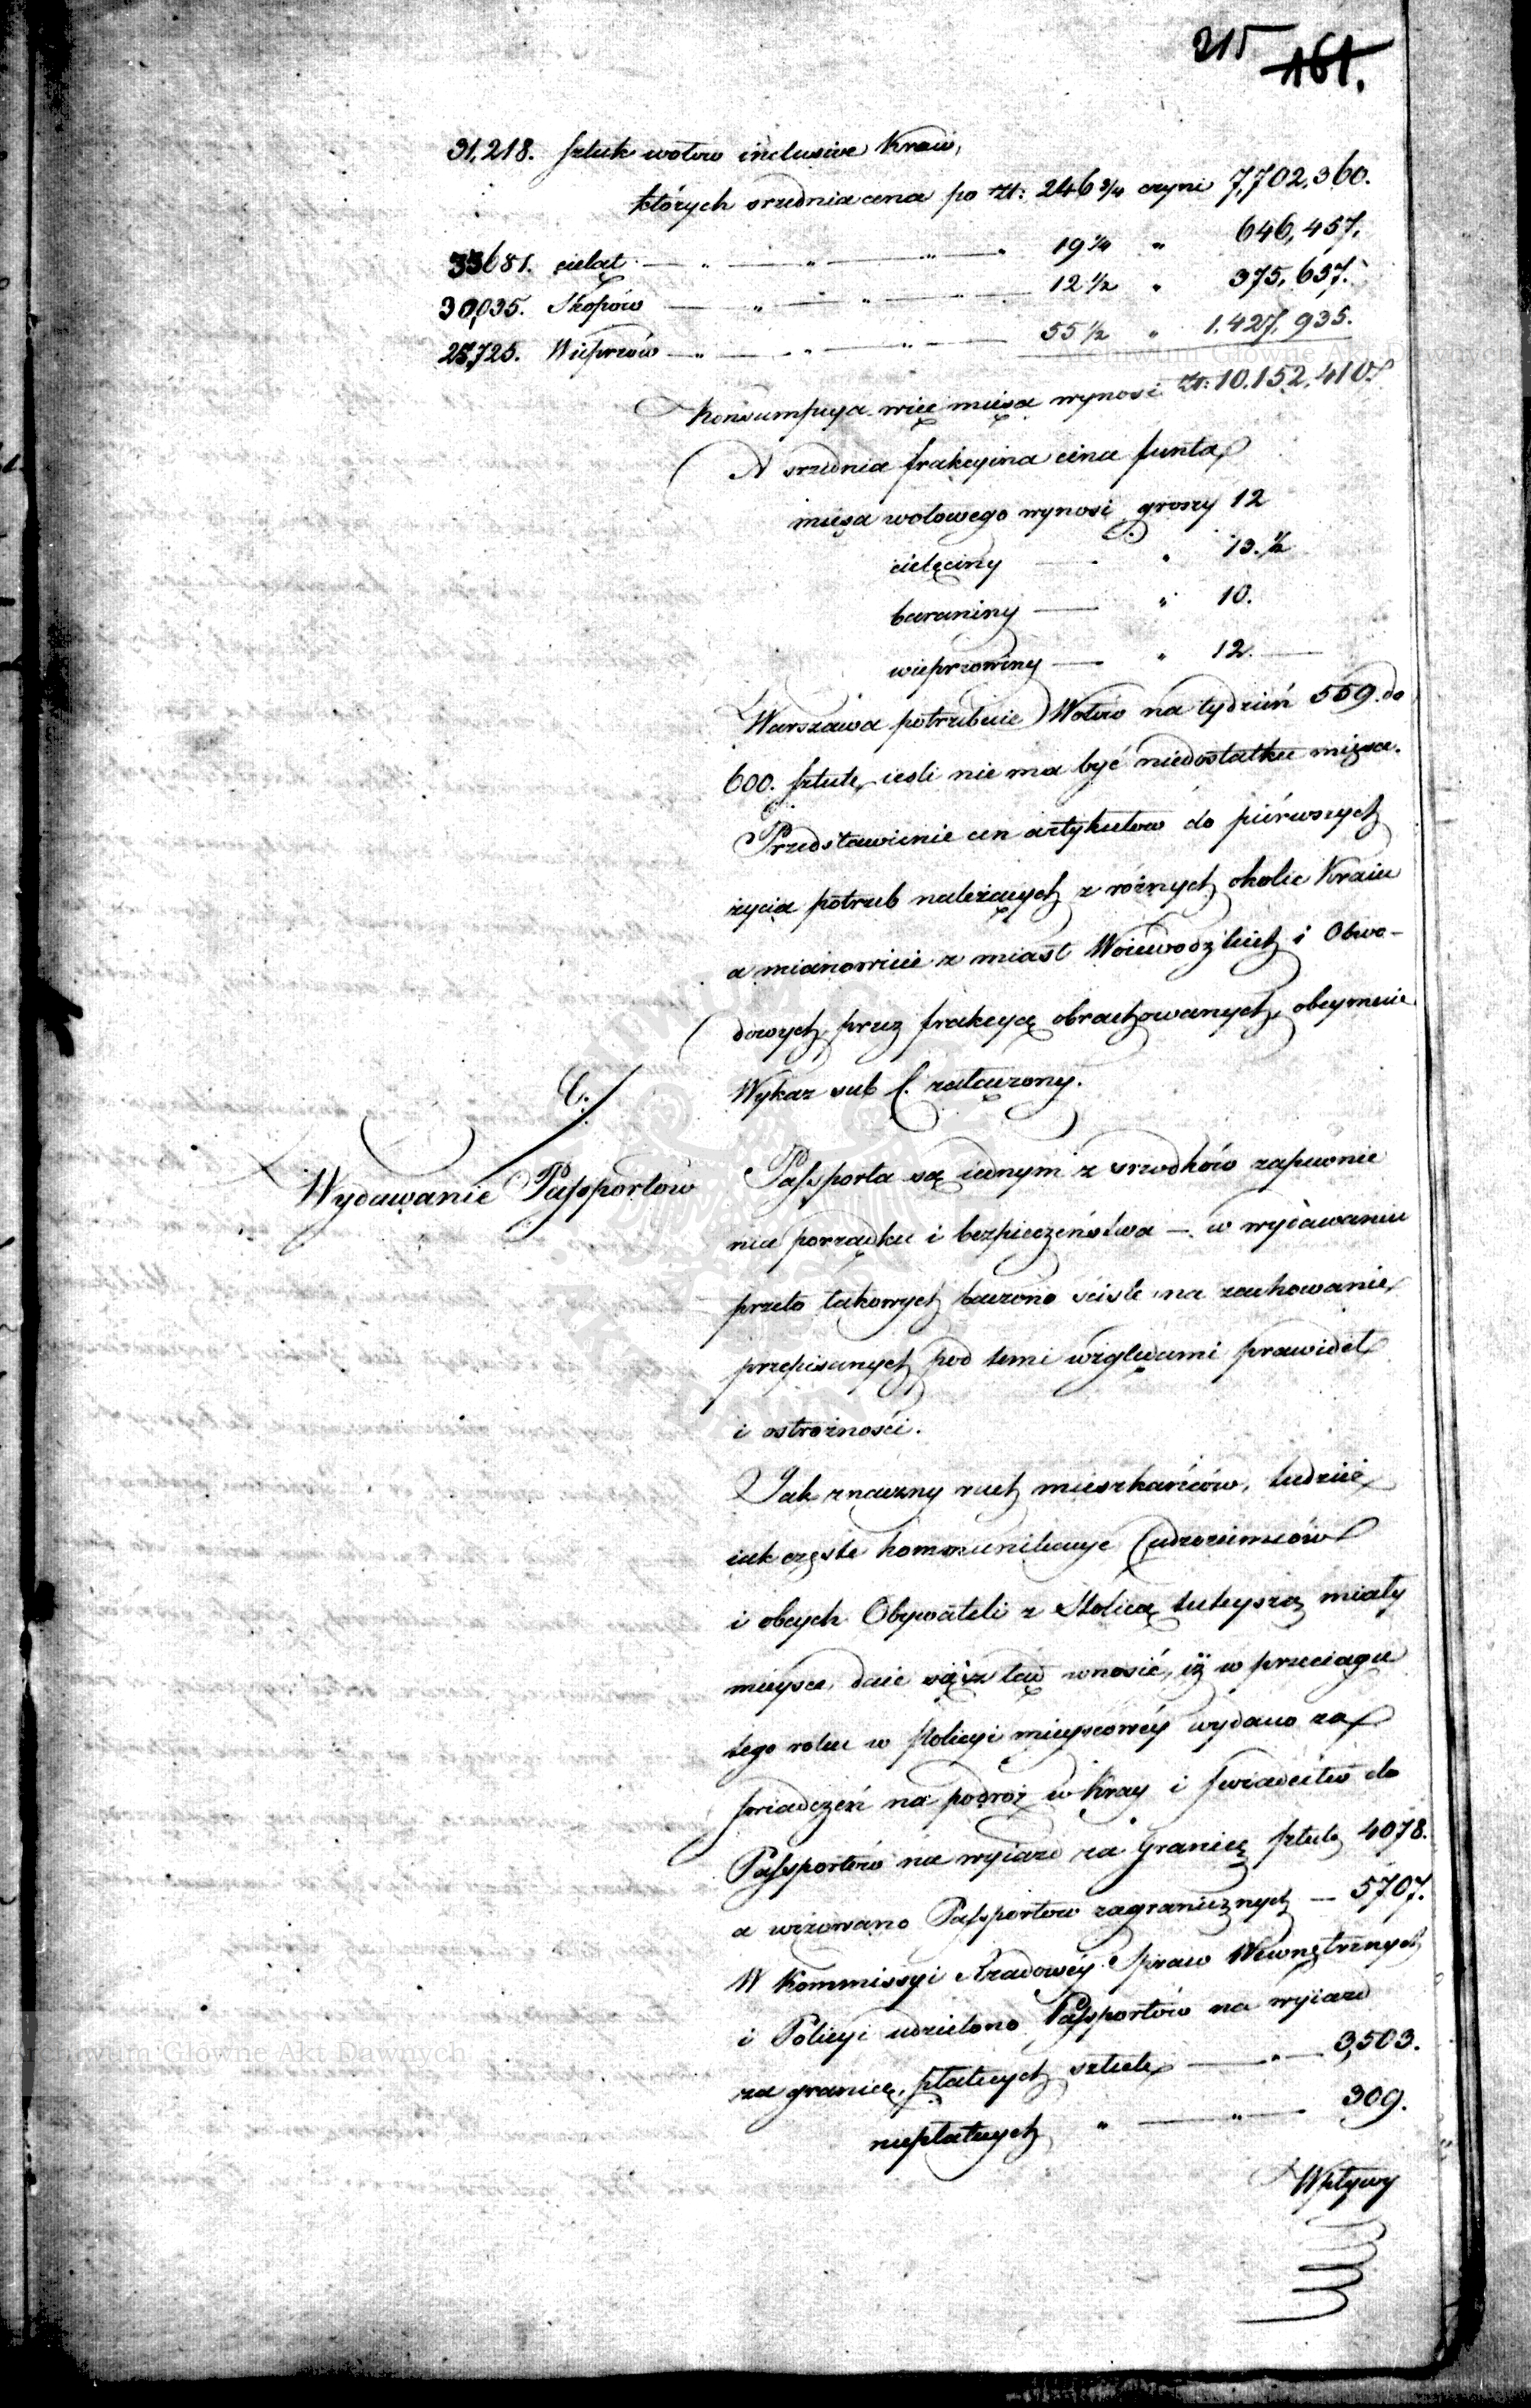 215 161.
31,218. sztuk wołow inclusive Krów,
których srzednia cena po Zł: 246 3/4 czyni 7,702,360.
33681. cieląt — " — " — " — " 19 1/4 " 646,457.
30,035. Skopów — " — " — " — 12 1/2 " 375,637.
25,725. Wieprzów — " — " — " — 55 1/2 " 1.427,935.
Konsumpcya więc mięsa wynosi Zł: 10.152,410.
A srzednia frakcyina cena funta
mięsa wołowego wynosi groszy 12
cielęciny — " 13.1/2
baraniny — " 10.
wieprzowiny — " 12.—
Warszawa potrzebuie Wołów na tydzień 559. do
600. sztuk, ieśli nie ma być niedostatku mięsa.
Przedstawienie cen artykułow do piérwszych
życia potrzeb należących z różnych okolic Kraiu
a mianowicie z miast Woiewodzkich i Obwo-
dowych, przez frakcyą obrachowanych, obeymuie
Wykaz sub f. załączony.
C.
Wydawanie Passportow
Passporta są iednym z srzodków zapewnie
nia porządku i bezpieczeństwa — w wydawaniu
przeto takowych baczono ściśle na zachowanie
przepisanych pod temi względami prawideł
i ostrożności.
Jak znaczny ruch mieszkańców, tudzież
iak częste kommunikacye Cudzoziemców
i obcych Obywateli z Stolicą tuteyszą miały
mieysce, daie się ztąd wnosić, iż w przeciągu
tego roku w Policyi mieyscowéy wydano za
świadczeń na podróż w Kray i świadectw do
Passportów na wyiazd za Granicę sztuk 4078.
a wizowano Passportow zagranicznych — 5707.
W Kommissyi Rządowéy Spraw Wewnętrznych
i Policyi udzielono Passportów na wyiazd
za granicę, płatnych sztuk — " — 3,503.
niepłatnych " — " — 309.
Wpływy
Archiwum Główne Akt Dawnych
Archiwum Główne Akt Dawnych